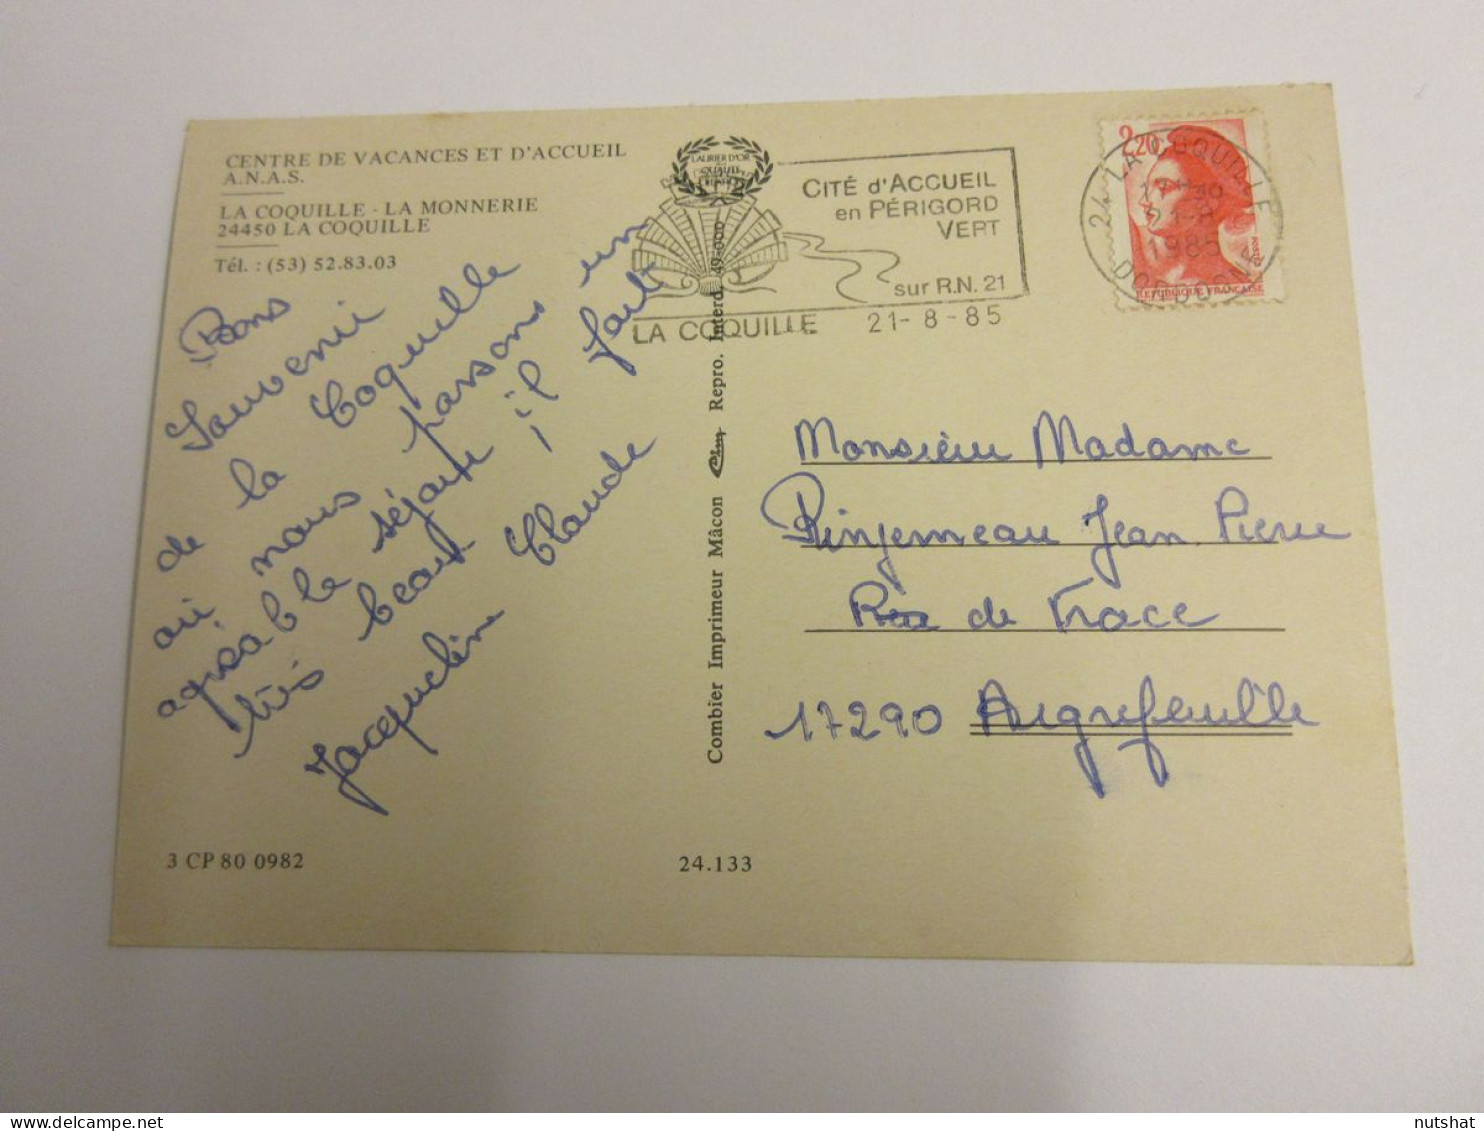 CENTRE DE VACANCES ET D'ACCUEIL
A.N.A.S.
LA COQUILLE - LA MONNERIE
24450 LA COQUILLE
Tél. : (53) 52.83.03
Bons
Souvenir
de la Coquille
où nous passons un
agréable séjour il fait
très beau
Claude
Jacqueline
3 CP 80 0982
24.133
Combier Imprimeur Mâcon Repro. Interd. 49-000
LAURIER D'OR
QUALITÉ
CITÉ d'ACCUEIL
en PÉRIGORD
VERT
sur R.N. 21
LA COQUILLE 21-8-85
24 LA COQUILLE
1985
DORDOGNE
2,20
REPUBLIQUE FRANÇAISE
Monsieur Madame
Jean Pierre
de
17290 Aigrefeuille
nutshat